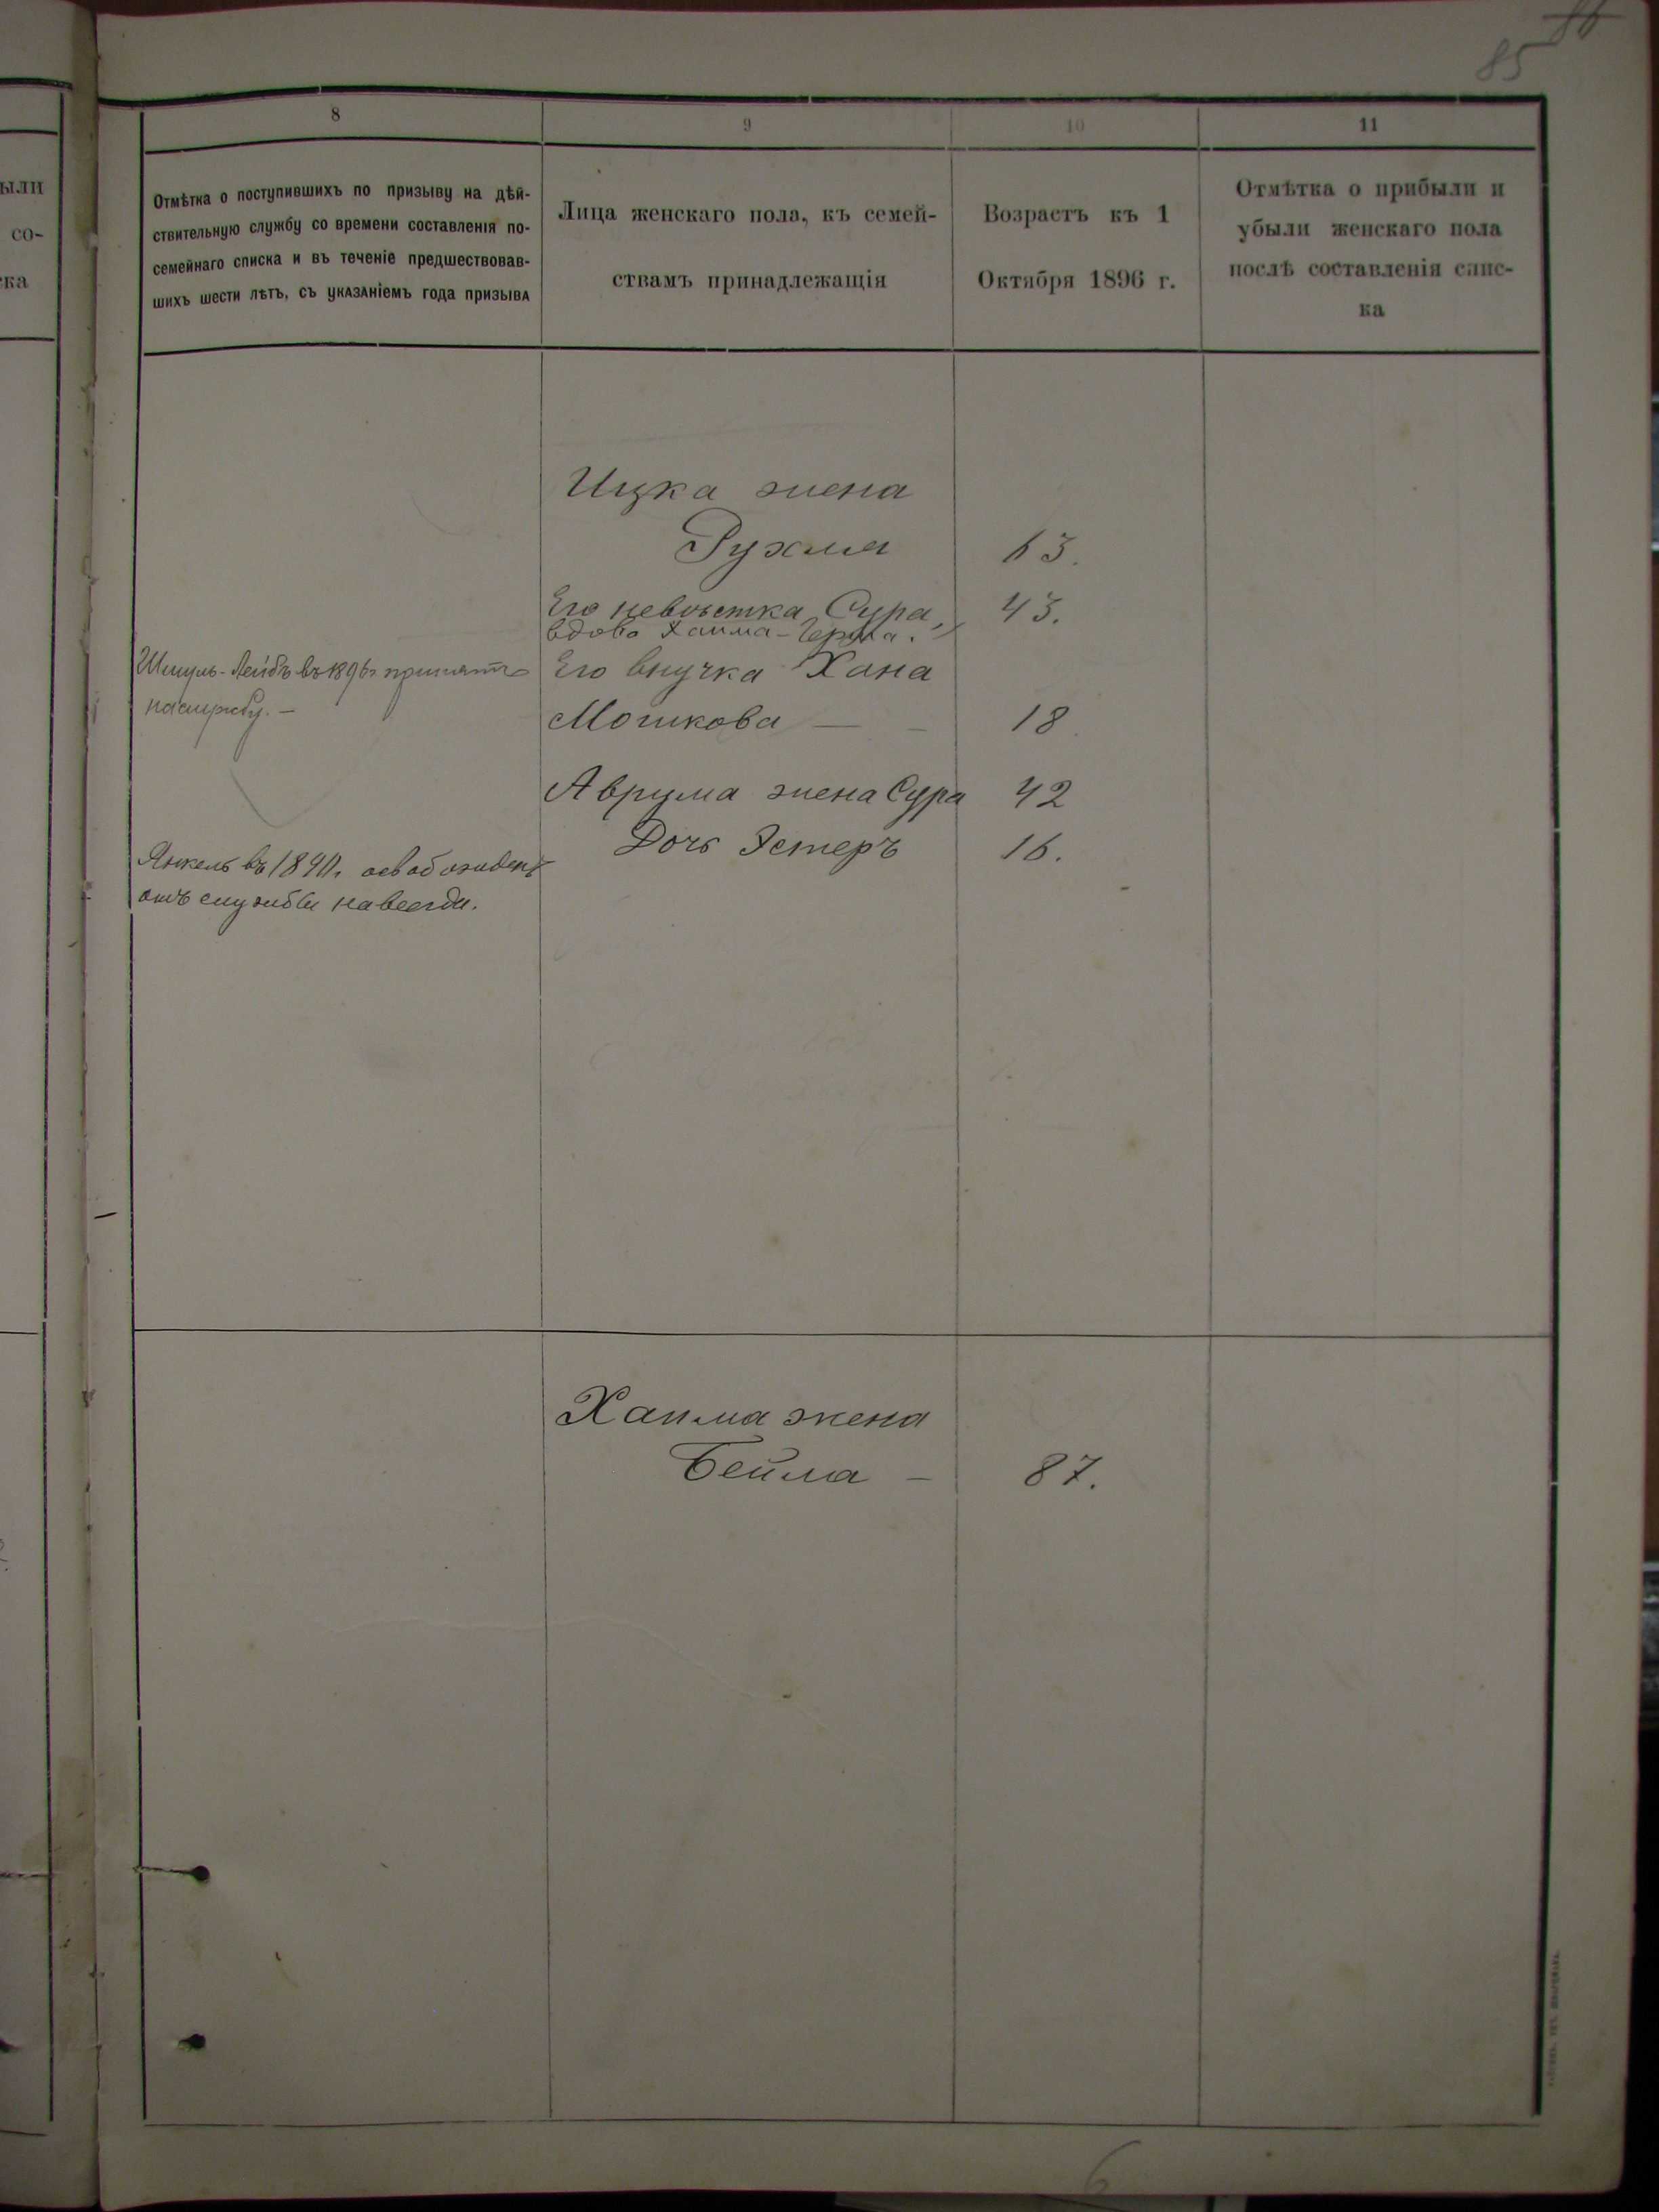 86
85
8
9
10
11
Отмѣтка о поступившихъ по призыву на дѣй-
ствительную службу со времени составленія по-
семейнаго списка и въ теченіе предшествовав-
шихъ шести лѣтъ, съ указаніемъ года призыва
Лица женскаго пола, къ семей-
ствамъ принадлежащія
Возрастъ къ 1
Октября 1896 г.
Отмѣтка о прибыли и
убыли женскаго пола
послѣ составленія спис-
ка
ыли
со-
ска
Ицка жена
Рухля 63.
Его невѣстка Сура, 43.
вдова Хаима-Герша.
Шмуль-Лейбъ въ 1896 г. принятъ
на службу. —
Его внучка Хана
Мошкова — 18.
Аврума жена Сура 42
Дочь Эстеръ 16.
Янкель въ 1890 г. освобожденъ
отъ службы навсегда.
Хаима жена
Бейла — 87.
6